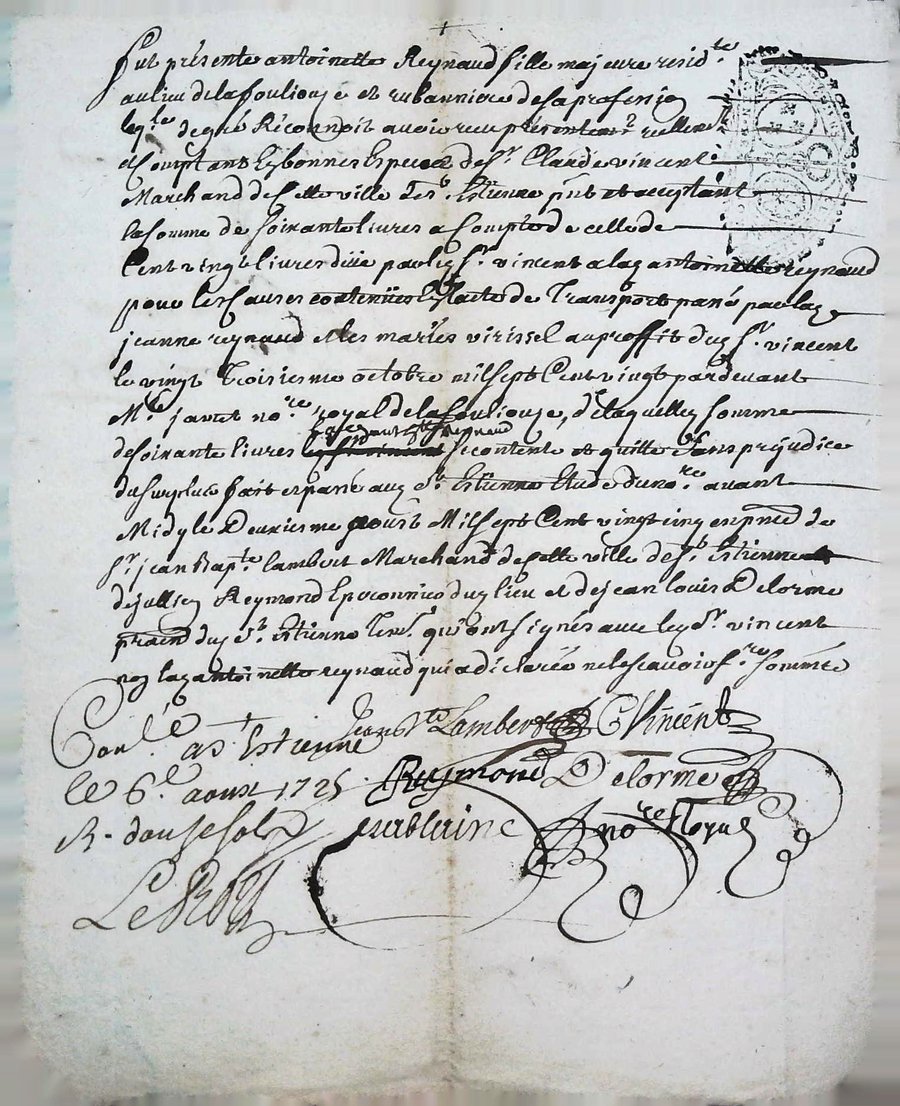 fut présente antoinette Reynaud fille majeure resid.te
au lieu de la fouliouze et rubanniere de sa profession
de gré Reconnoit avoir receu présentem.t réellem.t
et Comptant En bonnes Especes de S.r Claude vincent
Marchand de cette ville de S.t Estienne p̃nt et acceptant
la somme de soixante livres a Compte de celle de
Cent vingt livres düe par led S.r vincent a lad antoinette reynaud
pour les Causes contenües En l'acte de Transport passé par lad
jeanne reynaud et les mariés virissel au proffit dud S.r vincent
le vingt Troisieme octobre mil sept Cent vingt pardevant
M.e javet no.re royal de la fouliouze, de laquelle somme
de soixante livres lad antoinette reynaud se contente et quitte sans préjudice
du surplus fait et passé aud S.t Estienne Etude du no.re avant
Midy le Deuxiesme aoust Mil sept Cent vingt cinq en p̃nce de
S.r jean Bap.te lambert Marchand de cette ville de S.t Estienne
de jullien Reymond dud lieu et de jean louis Delorme
dud S.t Estienne Tem. qu'ont signés avec led S.r vincent
non lad antoinette reynaud qui a déclaré ne le scavoir f.re sommée
Jean B.te Lambert C Vincent
Con.lé a S.t Estienne
le 6.e aoust 1725
Reymond Delorme
R. douse sols
no.re Royal
Le Roy